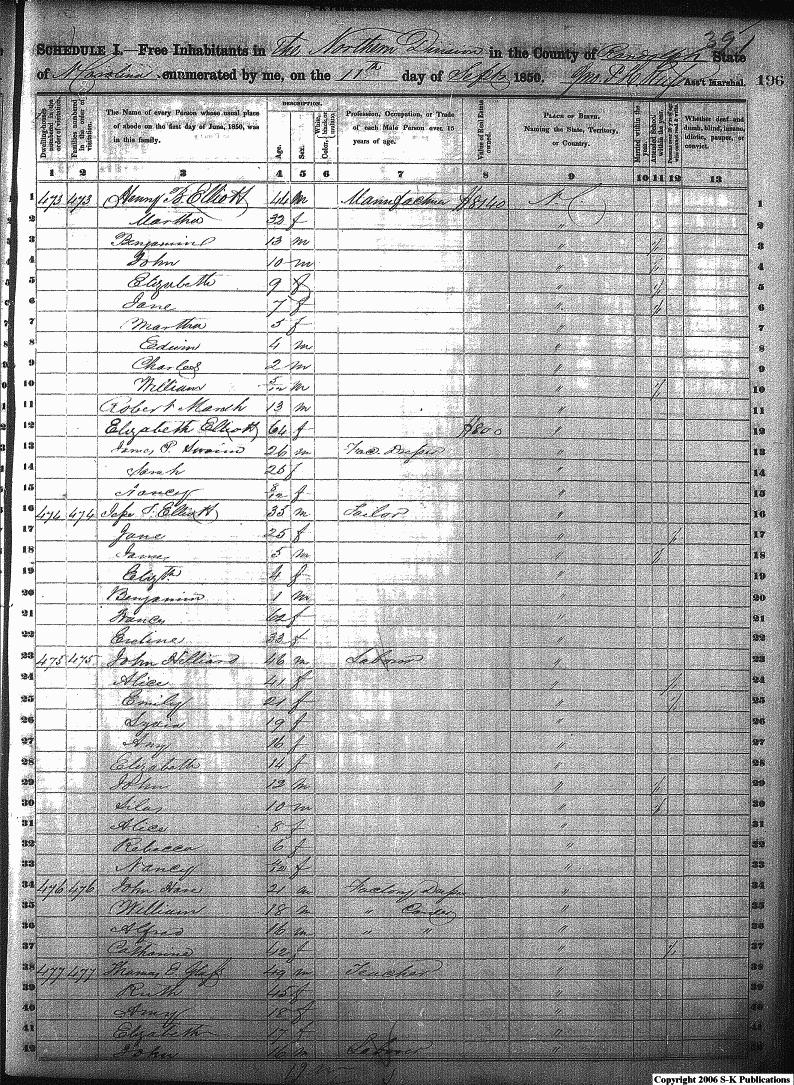 395
SCHEDULE I.—Free Inhabitants in The Northern Division in the County of Randolph State
of N. Carolina enumerated by me, on the 11th day of Sept 1850. Ass't Marshal. 196
DESCRIPTION.
Dwelling-houses numbered in the order of visitation. Families numbered in the order of visitation. The Name of every Person whose usual place of abode on the first day of June, 1850, was in this family. Age. Sex. Color, White, black, or mulatto. Profession, Occupation, or Trade of each Male Person over 15 years of age. Value of Real Estate owned. PLACE OF BIRTH. Naming the State, Territory, or Country. Married within the year. Attended School within the year. Persons over 20 y'rs of age who cannot read & write. Whether deaf and dumb, blind, insane, idiotic, pauper, or convict.
1 2 3 4 5 6 7 8 9 10 11 12 13
1 473 473 Henry B. Elliott 44 m Manufacturer $8140 N C 1
2 Martha 32 f " 2
3 Benjamin 13 m " / 3
4 John 10 m " / 4
5 Elizabeth 9 f " / 5
6 Jane 7 f " / 6
7 Martha 5 f " 7
8 Edwin 4 m " 8
9 Charles 2 m " 9
10 William 5/12 m " / 10
11 Robert Marsh 13 m " 11
12 Elizabeth Elliott 64 f $800 " 12
13 James P. Swaim 26 m " 13
14 Sarah 25 f " 14
15 Nancy 8/12 f " 15
16 474 474 Elliott 35 m Tailor " 16
17 Jane 25 f " / 17
18 James 5 m " / 18
19 Elizth 4 f " 19
20 Benjamin 1 m " 20
21 62 f " 21
22 Emeline 33 f " 22
23 475 475 John Hilliard 46 m Laborer " 23
24 Alice 41 f " / 24
25 Emily 21 f " / 25
26 Lydia 19 f " 26
27 Amy 16 f " 27
28 Elizabeth 14 f " 28
29 John 12 m " / 29
30 Silas 10 m " / 30
31 Alice 8 f " 31
32 Rebecca 6 f " 32
33 Nancy f " 33
34 476 476 John 21 m Factory " 34
35 William 18 m " Carder " 35
36 Alfred 16 m " " " 36
37 Catharine 42 f " / 37
38 477 477 Thomas E. 49 m Teacher " 38
39 Ruth 45 f " 39
40 Amy 18 f " 40
41 Elizabeth 17 f " 41
42 John 16 m Laborer "
19 m
Copyright 2006 S-K Publications